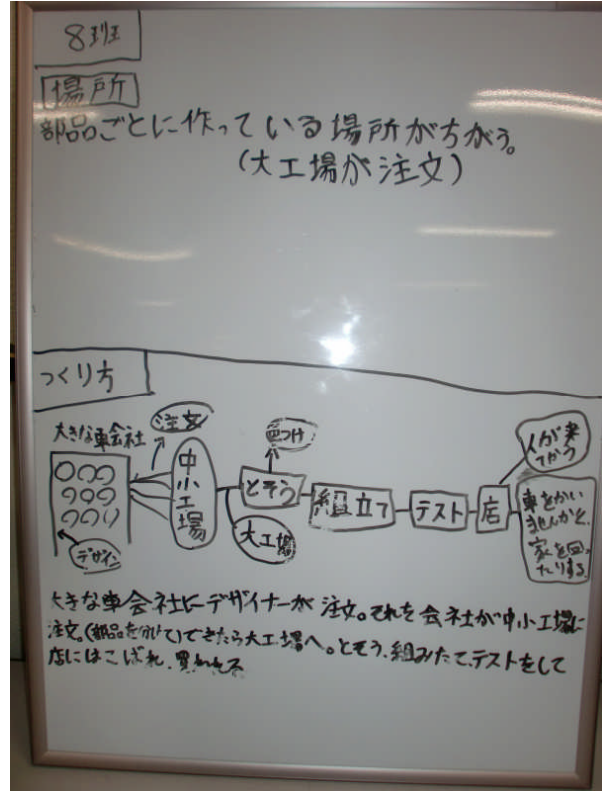 8班
場所
部品ごとに作っている場所がちがう。
(大工場が注文)
つくり方
大きな車会社
注文
デザイン
中小工場
色つけ
とそう
大工場
組立て
テスト
店
人が来
てかう
車をかい
ませんかと、
家を回っ
たりする。
大きな車会社にデザイナーが注文。それを会社が中小工場に
注文。(部品を分けて)できたら大工場へ。とそう、組みたて、テストをして
店にはこばれ、買われる